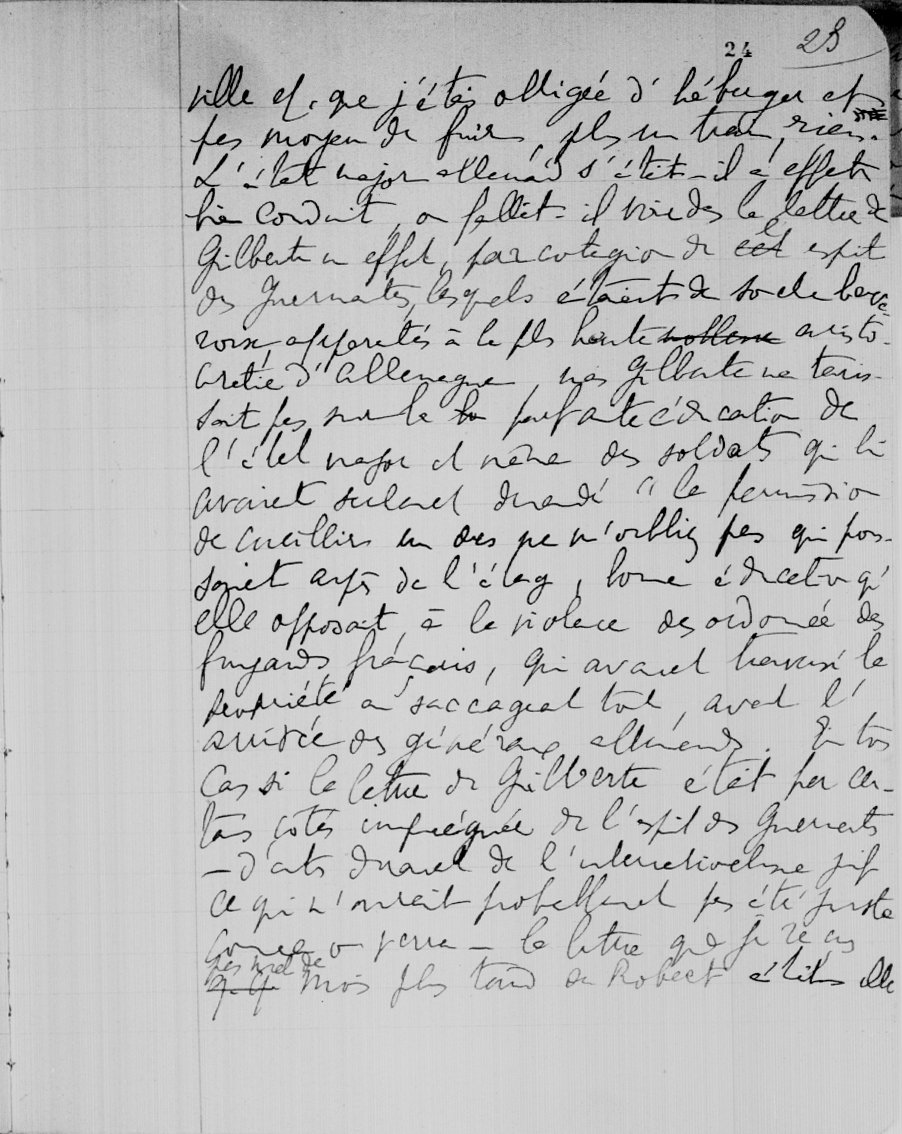 24 23
ville et que j'étais obligée d'héberger et
pas moyen de fuir, plus un train, rien.
L'état major allemand s'était-il en effet
bien conduit, ou fallait-il voir dans la lettre de
Gilberte un effet, par contagion de cet l' esprit
des Guermantes, lesquels étaient de souche bava-
roise, apparentés à la plus haute noblesse aristo-
cratie d'Allemagne, mais Gilberte ne taris-
sait pas sur la parfaite éducation de
l'état major et même des soldats qui lui
avaient seulement demandé "la permission
de cueillir un des ne m'oubliez pas qui pous-
saient auprès de l'étang, bonne éducation qu'
elle opposait à la violence désordonnée des
fuyards français, qui avaient traversé la
propriété en saccageant tout, avant l'
arrivée des généraux allemands. En tous
cas si la lettre de Gilberte était par cer-
tains côtés imprégnée de l'esprit des Guermantes
– d'autres diraient de l'internationalisme juif
ce qui n'aurait probablement pas été juste
comme on verra – la lettre que je reçus
pas mal de
q. q. mois plus tard de Robert était elle